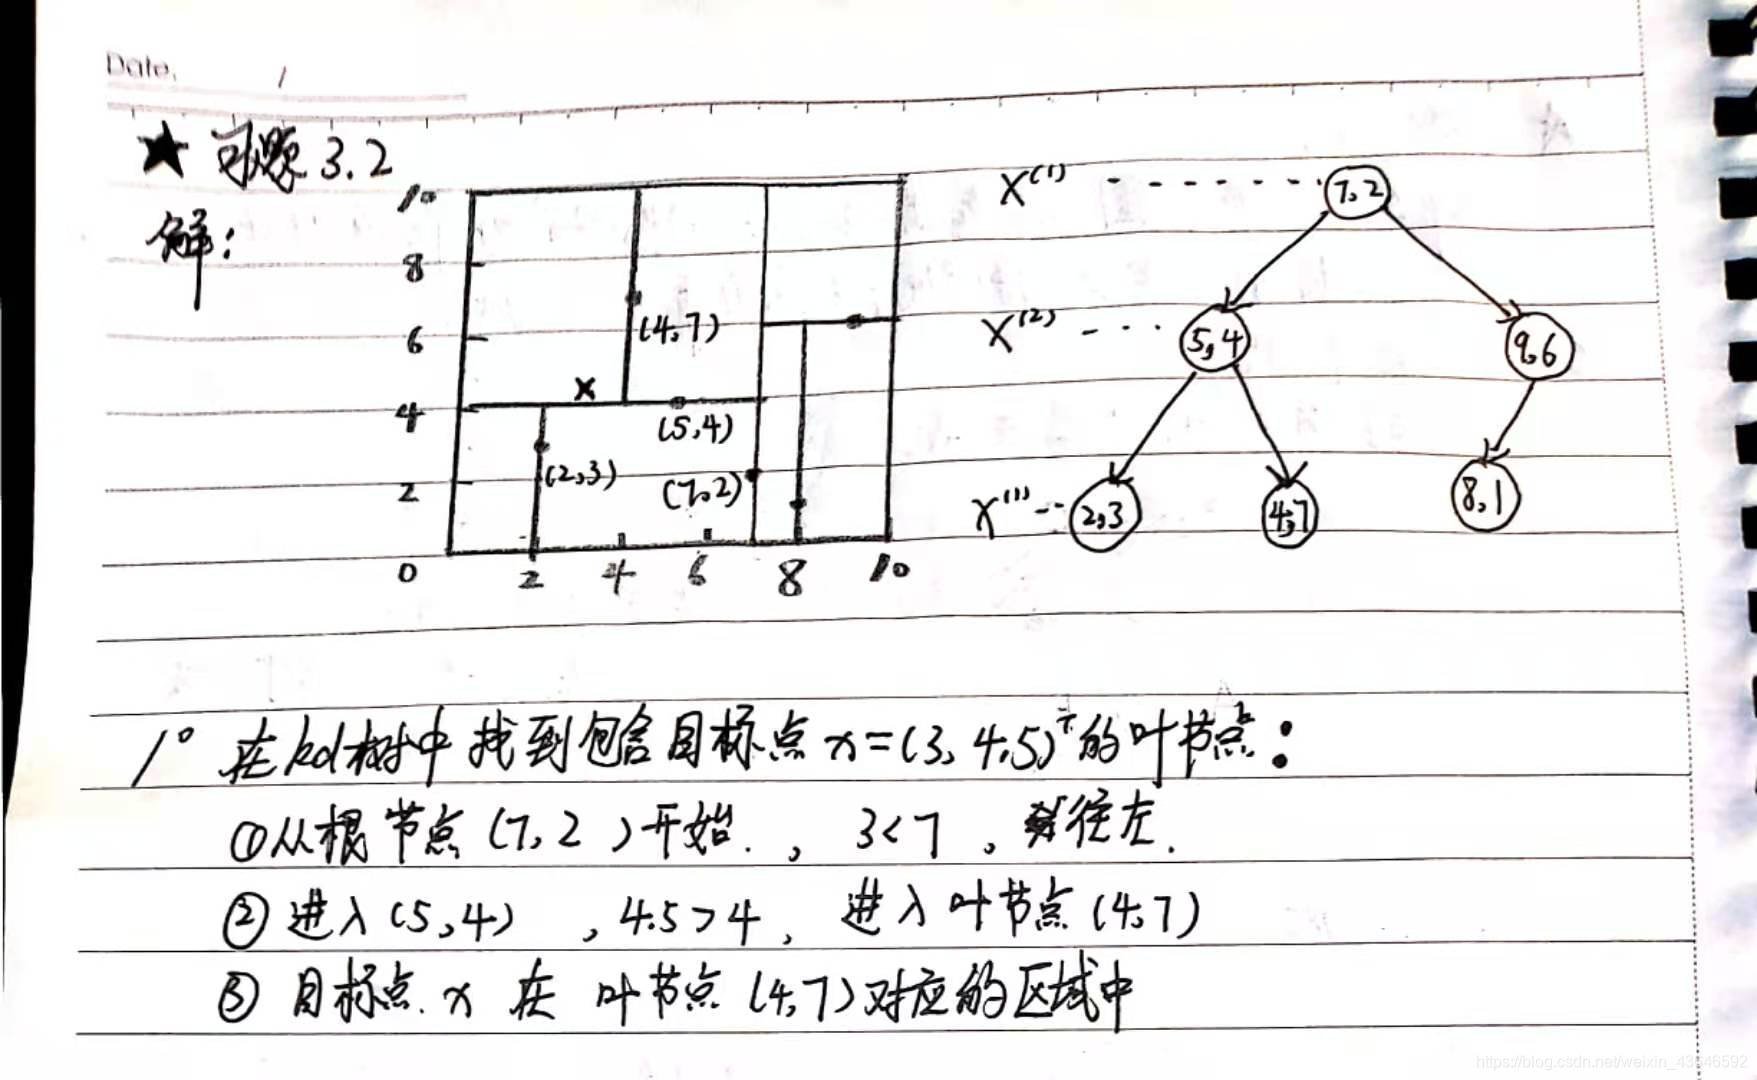 Date. /
★ 习题 3.2
解:
10
8
6
4
2
0
2 4 6 8 10
(4,7)
x
(5,4)
(2,3)
(7,2)
X⁽¹⁾ 7,2
X⁽²⁾ 5,4 9,6
X⁽¹⁾ 2,3 4,7 8,1
1° 在kd树中找到包含目标点 x=(3,4.5)ᵀ的叶节点:
①从根节点(7,2)开始., 3<7, 往左.
②进入(5,4) ,4.5>4, 进入叶节点(4,7)
③ 目标点 x 在 叶节点(4,7)对应的区域中